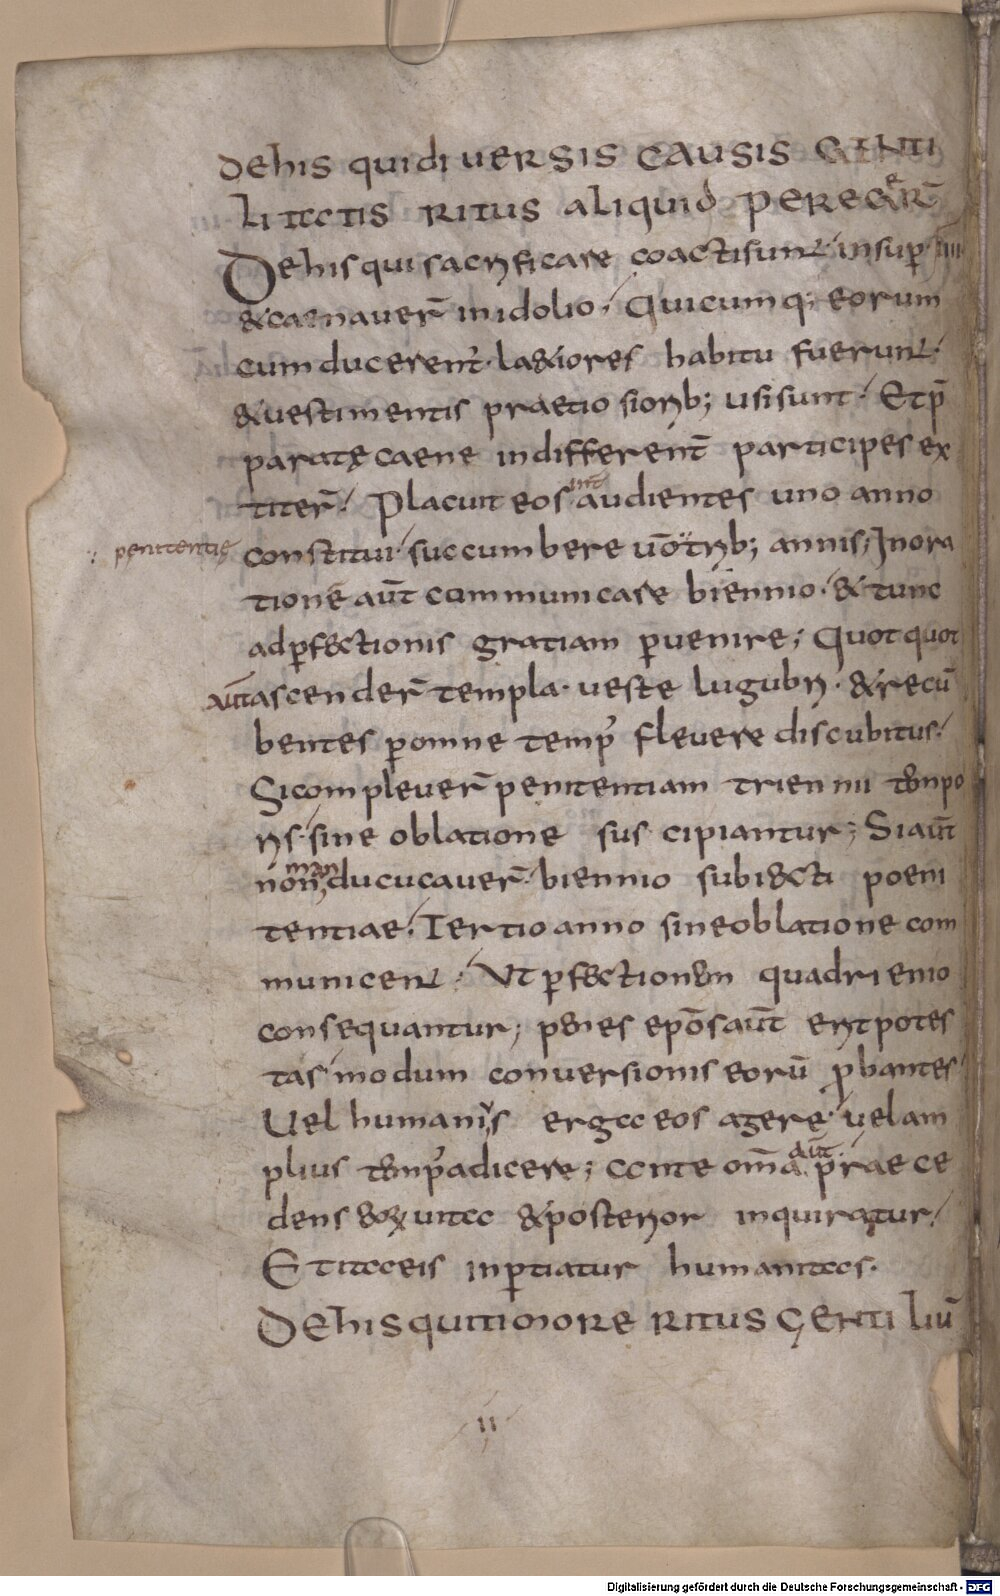 Dehis quidiuersis causis genti
litatis ritus aliquid peregerͬ
Dehisqui sacrificare coactisunt · insup
&caenauer̄ inidolio · Quicumq; eorum
cum ducerent · la&iores habitu fuerunt ·
&uestimentis praetiosiorib; usisunt · Etp̄
paratę caene indifferent̄ participes ex
titer̄ · Placuit eos int̄ audientes uno anno
penitentię
constitui · succumbere ūo trib; annis; Inora
tionē aūt communicare biennio · & tunc
adp̱fectionis gratiam p̱uenire; Quotquot
aūt ascender̄ templa · ueste lugubri · &recū
bentes p̱omne temp' fleuere discubitus ·
Sicompleuer̄ penitentiam triennii tempo
ris · sine oblatione suscipiantur; Siaūt
non man ducucauer̄ · biennio subiecti poeni
tentiae · Tertio anno sineoblatione com
municent · Ut p̱fectionem quadrienio
consequantur; penes ep̄osaūt eritpotes
tas modum conuersionis eorū p̱bantes
Uel humanis erga eos agere · uelam
plius temp'adicere; ante om̄a aūt praece
dens eorum uita &posterior inquiratur ·
Et ita eis inp̱tiatur humanitas ·
Dehis quitimore ritus gentiliū
II
Digitalisierung gefördert durch die Deutsche Forschungsgemeinschaft - DFG